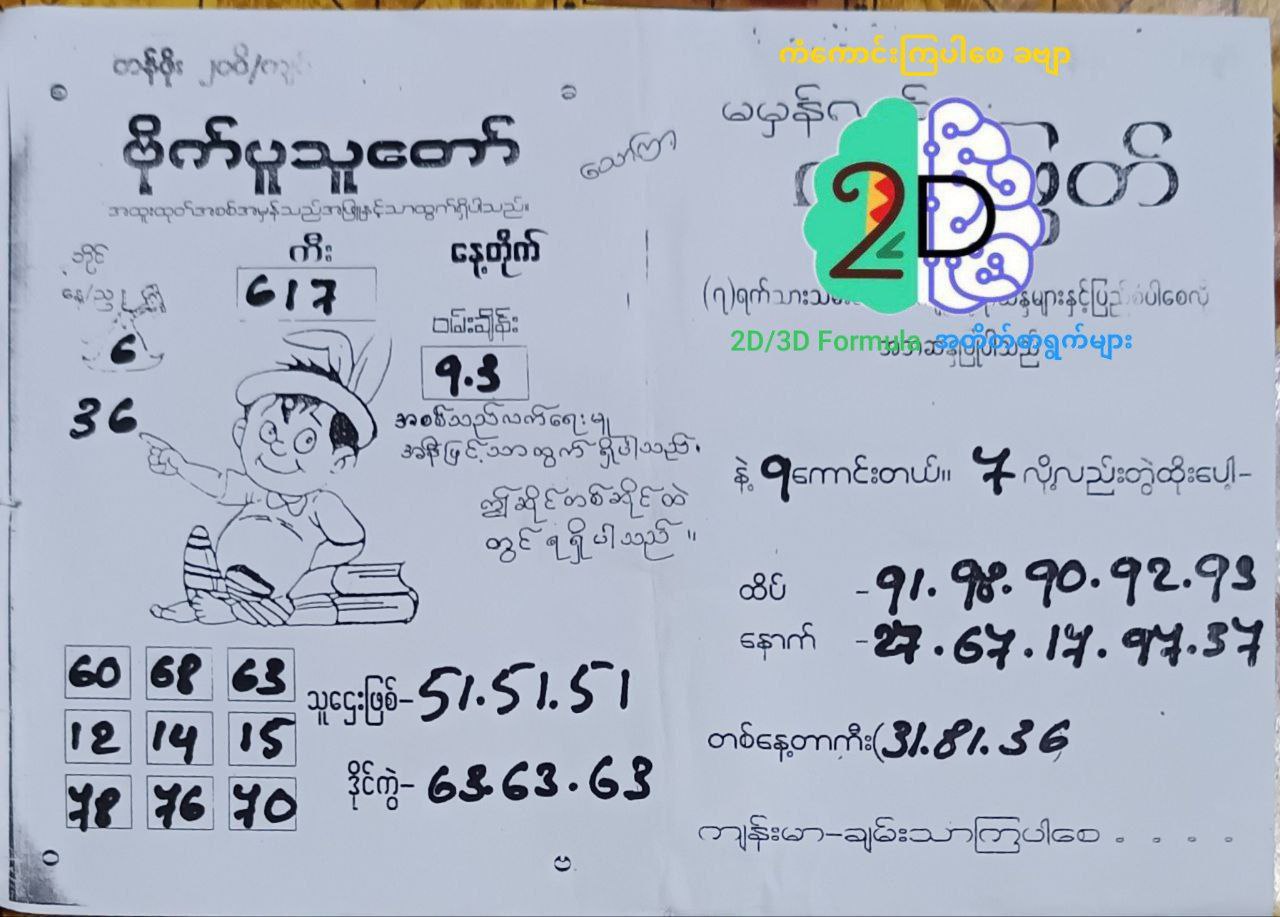 တန်ဖိုး ၂၀၀ိ/ကျပ်
ဗိုက်ပူသူတော်
အထူးထုတ်အစစ်အမှန်သည်အဖြူနှင့်သာထွက်ရှိပါသည်။
ကီး
617
နေ့တိုက်
ဝမ်းချိန်း
9.3
6
36
အစစ်သည်လက်ရေးမူ
အနီဖြင့်သာထွက်ရှိပါသည်.
ဤဆိုင်တစ်ဆိုင်ထဲ
တွင်ရရှိပါသည်။
60 68 63
12 14 15
78 76 70
သူဌေးဖြစ်- 51.51.51
ဒိုင်ကွဲ- 63.63.63
သော်ကြာ
ကံကောင်းကြပါစေ ခဗျာ
မမှန်
2D
(၇)ရက်သား
2D/3D Formula အတိုက်စာရွက်များ
နဲ့ 9ကောင်းတယ်။ 7 လို့လည်းတွဲထိုးပေါ့-
ထိပ် -91.98.90.92.93
နောက် -27.67.17.97.37
တစ်နေ့တာကီး(31.81.36
ကျန်းမာ-ချမ်းသာကြပါစေ . . . .